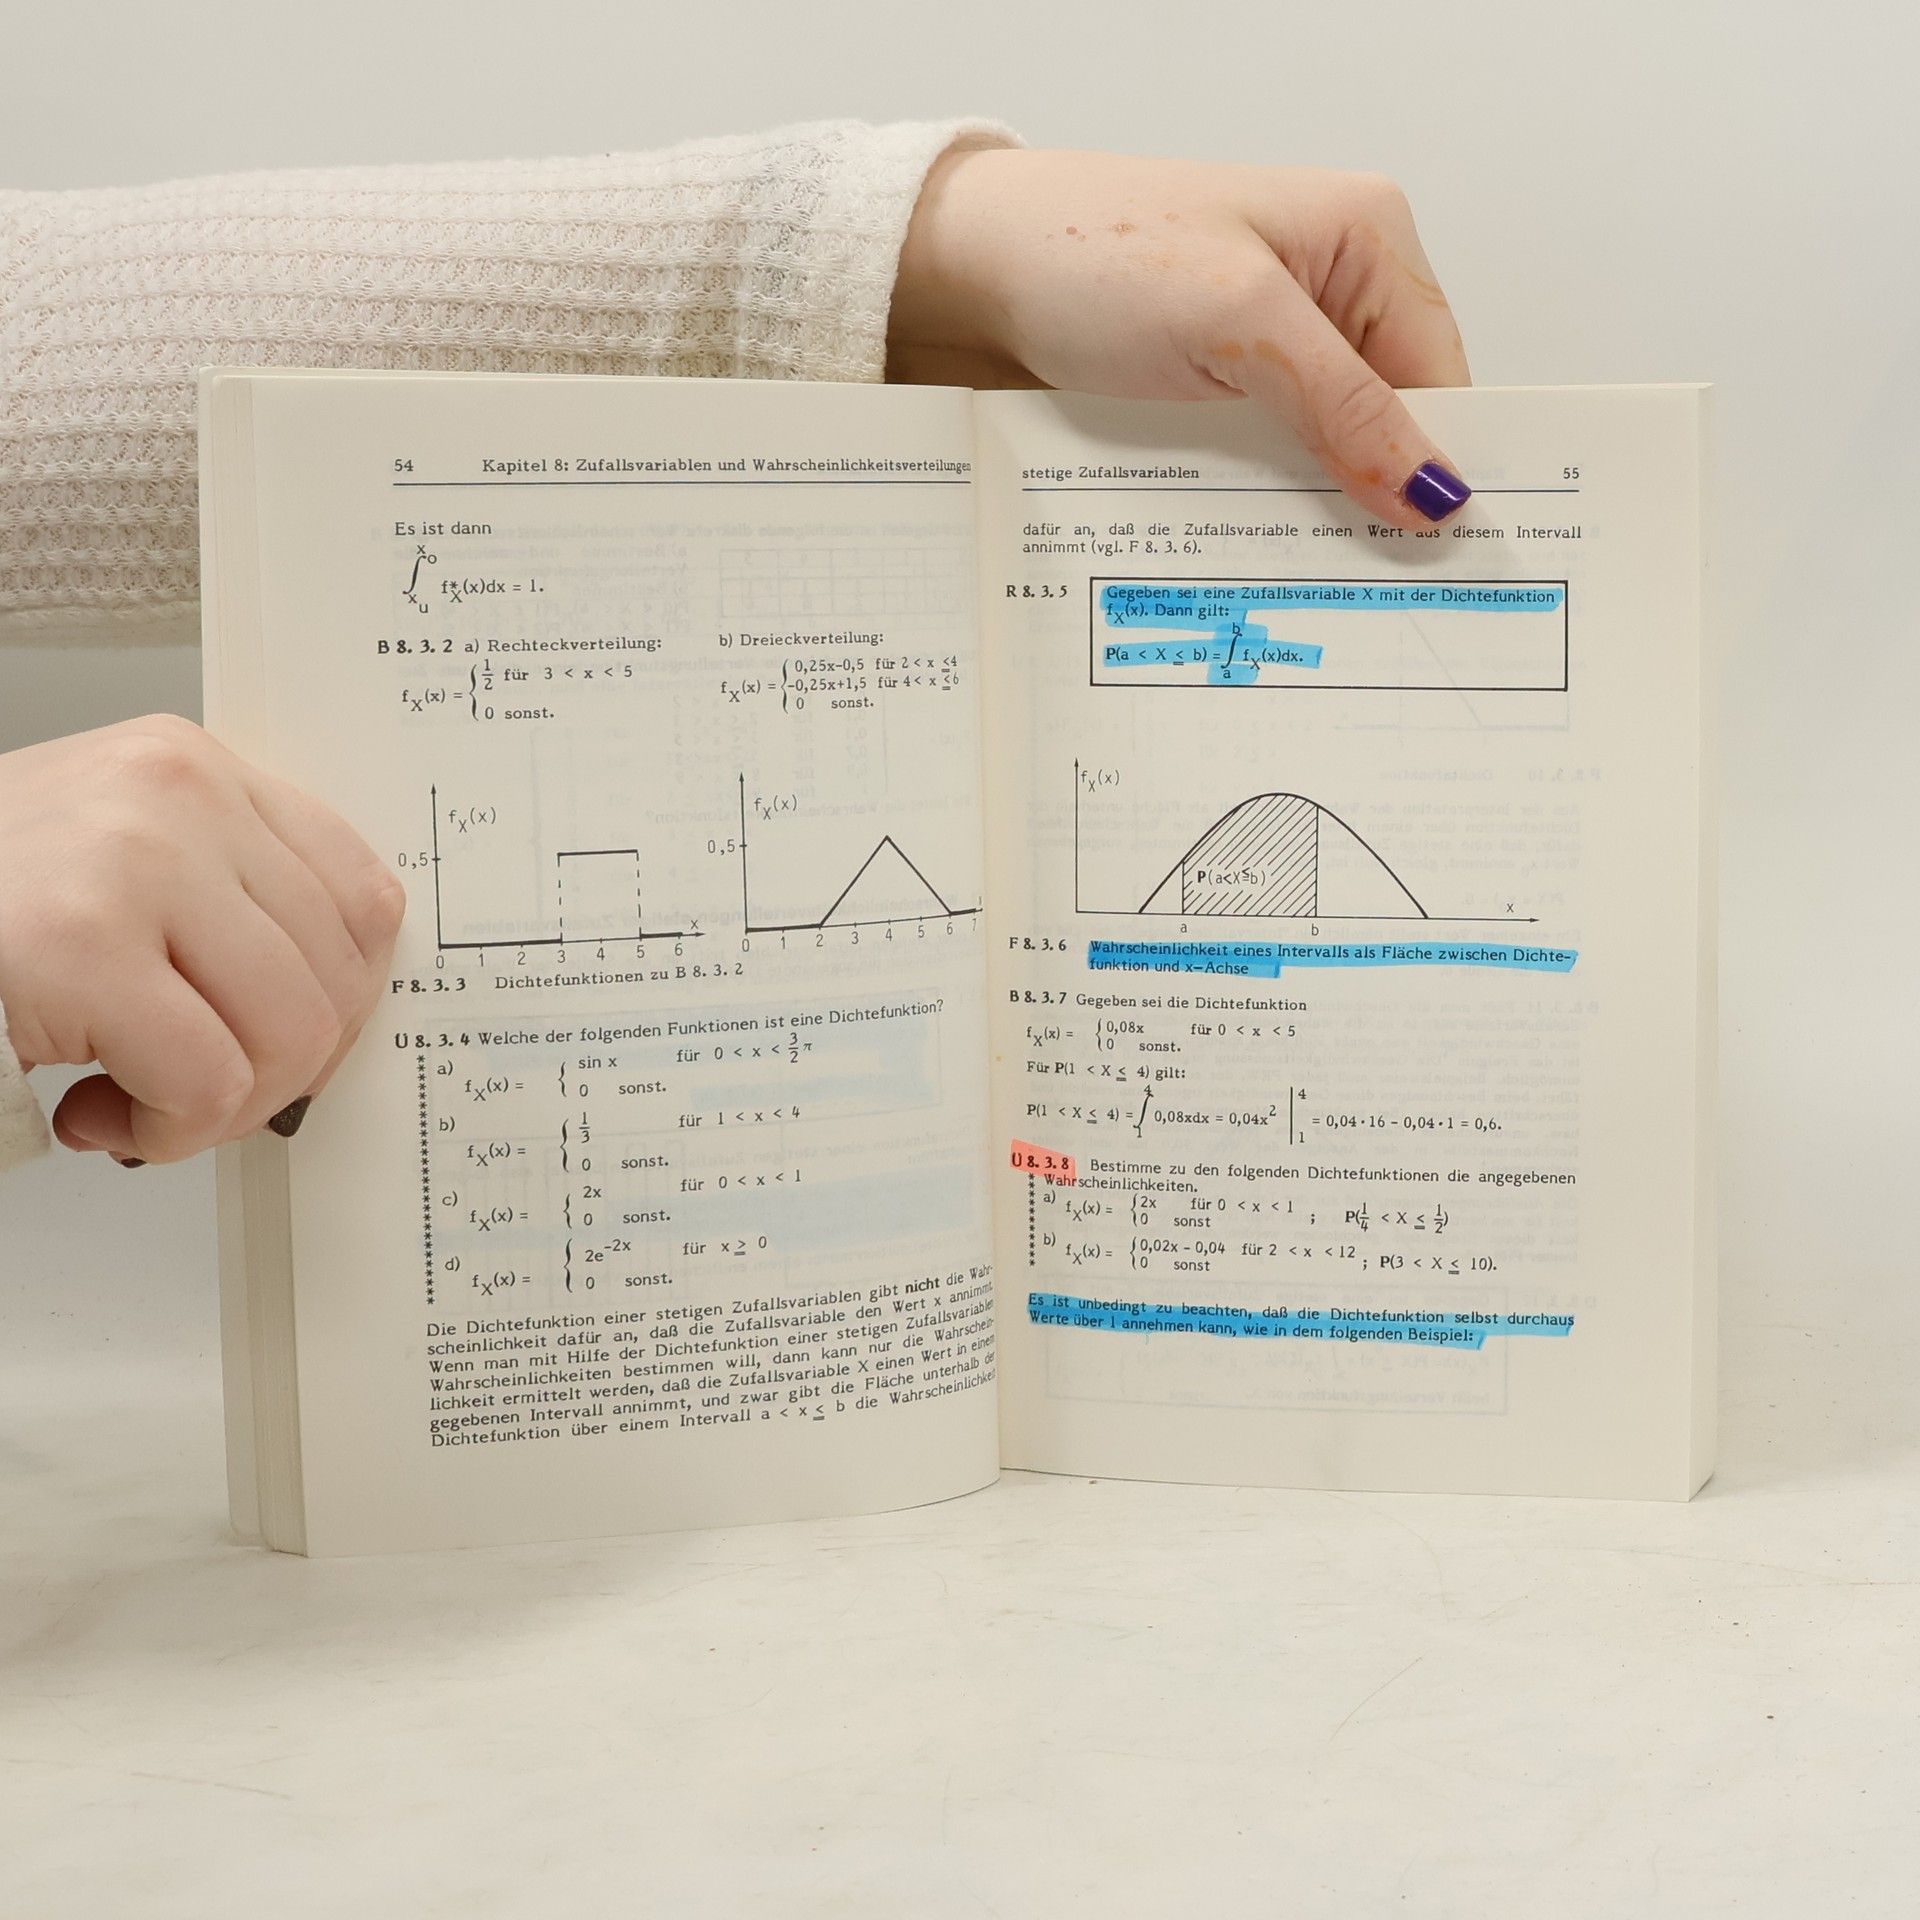 54 Kapitel 8: Zufallsvariablen und Wahrscheinlichkeitsverteilungen
Es ist dann
∫ f*X(x)dx = 1.
xo
xu
B 8. 3. 2 a) Rechteckverteilung:
fX(x) = { 1/2 für 3 < x < 5
0 sonst.
b) Dreieckverteilung:
fX(x) = { 0,25x-0,5 für 2 < x ≤4
-0,25x+1,5 für 4 < x ≤6
0 sonst.
fX(x)
0,5
0 1 2 3 4 5 6 x
fX(x)
0,5
0 1 2 3 4 5 6 7
F 8. 3. 3 Dichtefunktionen zu B 8. 3. 2
Ü 8. 3. 4 Welche der folgenden Funktionen ist eine Dichtefunktion?
a) fX(x) = { sin x für 0 < x < 3/2 π
0 sonst.
b) fX(x) = { 1/3 für 1 < x < 4
0 sonst.
c) fX(x) = { 2x für 0 < x < 1
0 sonst.
d) fX(x) = { 2e^-2x für x ≥ 0
0 sonst.
Die Dichtefunktion einer stetigen Zufallsvariablen gibt nicht die Wahr-
scheinlichkeit dafür an, daß die Zufallsvariable den Wert x annimmt.
Wenn man mit Hilfe der Dichtefunktion einer stetigen Zufallsvariablen
Wahrscheinlichkeiten bestimmen will, dann kann nur die Wahrschein-
lichkeit ermittelt werden, daß die Zufallsvariable X einen Wert in einem
gegebenen Intervall annimmt, und zwar gibt die Fläche unterhalb der
Dichtefunktion über einem Intervall a < x ≤ b die Wahrscheinlichkeit
stetige Zufallsvariablen 55
dafür an, daß die Zufallsvariable einen Wert aus diesem Intervall
annimmt (vgl. F 8. 3. 6).
R 8. 3. 5 Gegeben sei eine Zufallsvariable X mit der Dichtefunktion
fX(x). Dann gilt:
P(a < X ≤ b) = ∫ fX(x)dx.
b
a
fX(x)
P(a<X≤b)
x
a b
F 8. 3. 6 Wahrscheinlichkeit eines Intervalls als Fläche zwischen Dichte-
funktion und x-Achse
B 8. 3. 7 Gegeben sei die Dichtefunktion
fX(x) = { 0,08x für 0 < x < 5
0 sonst.
Für P(1 < X ≤ 4) gilt:
P(1 < X ≤ 4) = ∫ 4 1 0,08xdx = 0,04x² | 4 1 = 0,04·16 - 0,04·1 = 0,6.
Ü 8. 3. 8 Bestimme zu den folgenden Dichtefunktionen die angegebenen
Wahrscheinlichkeiten.
a) fX(x) = { 2x für 0 < x < 1 ; P(1/4 < X ≤ 1/2)
0 sonst
b) fX(x) = { 0,02x - 0,04 für 2 < x < 12 ; P(3 < X ≤ 10).
0 sonst
Es ist unbedingt zu beachten, daß die Dichtefunktion selbst durchaus
Werte über 1 annehmen kann, wie in dem folgenden Beispiel: